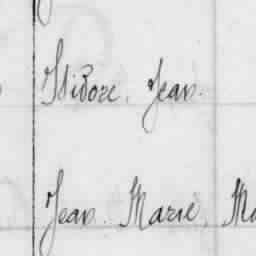 Isidore. Jean.
Jean. Marie, Ma